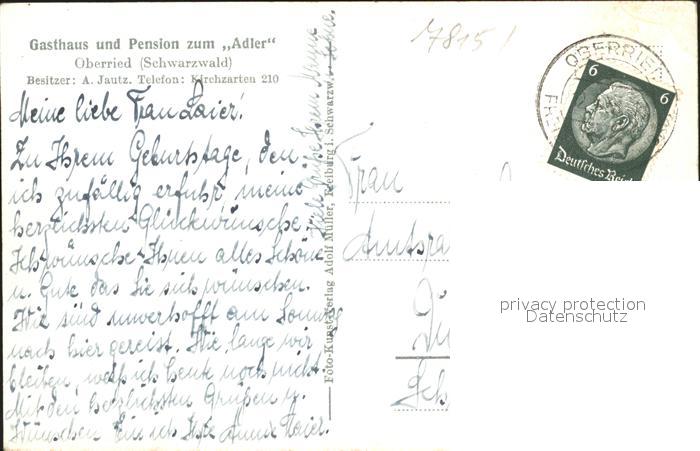 Gasthaus und Pension zum „Adler"
Oberried (Schwarzwald)
Besitzer: A. Jautz. Telefon: Kirchzarten 210
Meine liebe Frau Laier!
Zu Ihrem Geburtstage, den
ich zufällig erfuhr, meine
herzlichsten Glückwünsche.
Ich wünsche Ihnen alles Schöne
u. Gute das Sie sich wünschen.
Wir sind unverhofft am Sonntag
nach hier gereist. Wie lange wir
bleiben, weiß ich heute noch nicht.
Mit den herzlichsten Grüßen u.
Wünschen bin ich Ihre Laier.
Viele Grüße Ihrem
Foto-Kunst-Verlag Adolf Müller, Freiburg i. Schwarzw.
7815/
OBERRIED
6 6
Deutsches Reich
Frau
Amts
privacy protection
Datenschutz